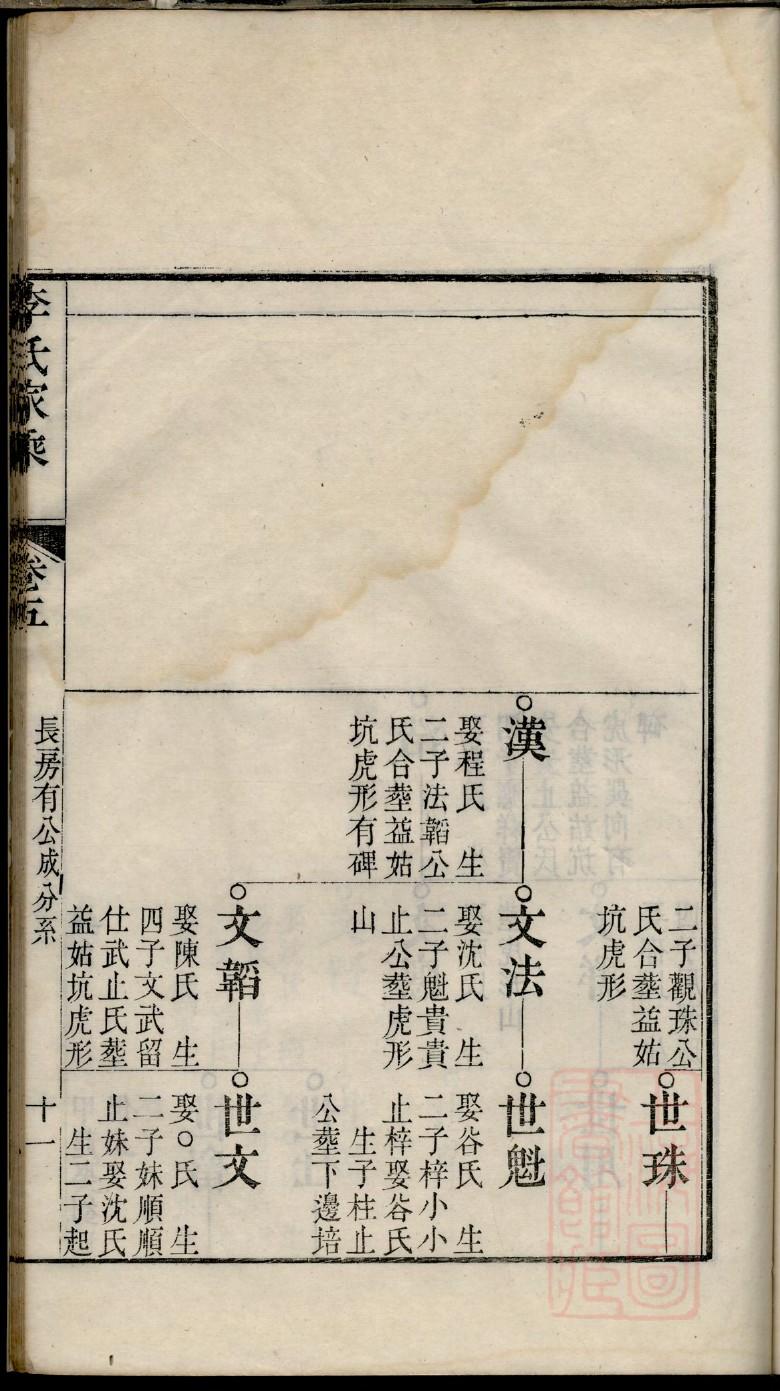 二子觀珠公
氏合塟益姑
坑虎形
世珠
漢
娶程氏　生
二子法韜公
氏合塟益姑
坑虎形有碑
文法
娶沈氏　生
二子魁貴貴
止公塟虎形
山
世魁
娶谷氏　生
二子梓小小
止梓娶谷氏
生子柱止
公塟下邊培
文韜
娶陳氏　生
四子文武留
仕武止氏塟
益姑坑虎形
世文
娶○氏　生
二子妹順順
止妹娶沈氏
生二子起
李氏家乘
卷五
長房有公成分系
十一